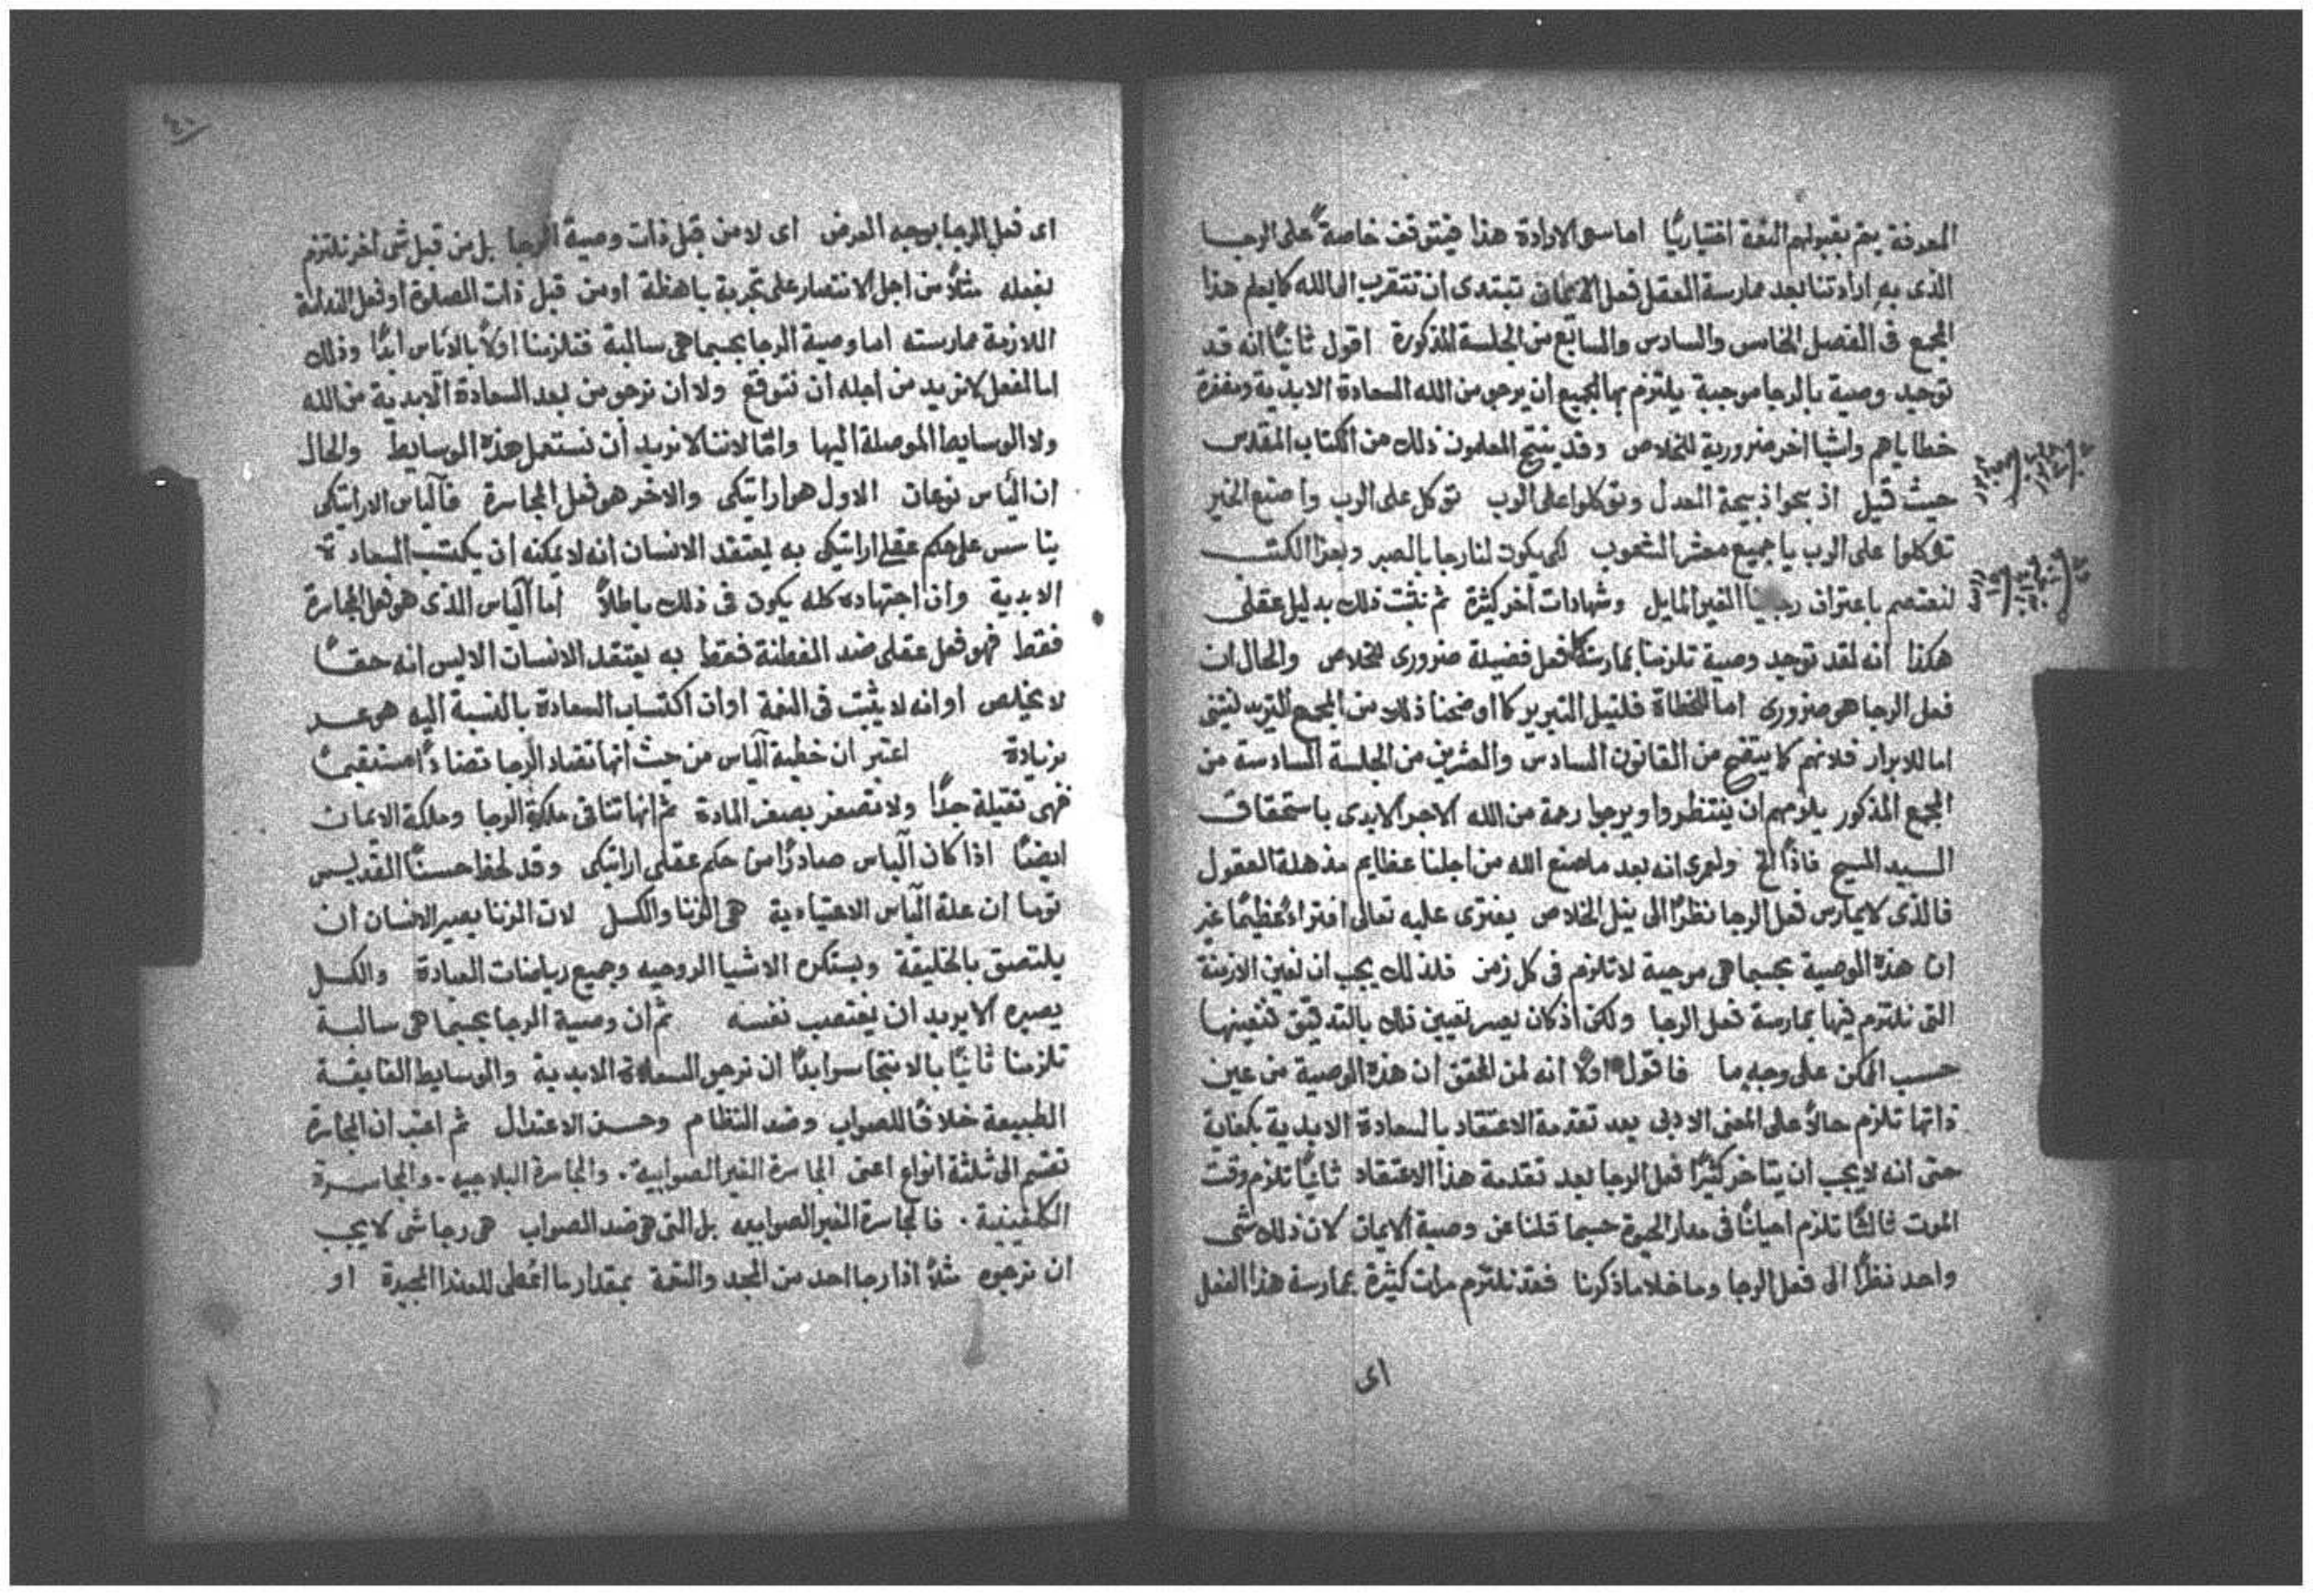 المعرفة يتم بقبولهم النعمة اختياريًا اما سعى الارادة هذا فيتوقف خاصةً على الرجا
الذى به ارادتنا بعد ممارسة العقل فعل الايمان تبتدى ان تتقرب الى الله كما يعلم هذا
المجمع فى الفصل الخامس والسادس والسابع من الجلسة المذكورة اقول ثانيًا انه قد
توجد وصية بالرجا موجبة يلتزم بها الجميع ان يرجو من الله السعادة الابدية ومغفرة
خطاياهم واشيا اخر ضرورية للخلاص وقد ينتج المعلمون ذلك من الكتاب المقدس
حيث قيل اذبحوا ذبيحة العدل وتوكلوا على الرب توكل على الرب واصنع الخير
توكلوا على الرب يا جميع معشر الشعوب لكى يكون لنا رجا بالصبر وبعزا الكتب
لنعتصم باعتراف رجاينا الغير المايل وشهادات أخر كثيرة ثم نثبت ذلك بدليل عقلى
هكذا انه لقد توجد وصية تلزمنا بممارسة كل فعل فضيلة ضرورى للخلاص والحال ان
فعل الرجا هو ضرورى اما للخطاة فلنيل التبرير كما اوضحنا ذلك من المجمع التريدنتينى
اما للابرار فلانهم كما يتضح من القانون السادس والعشرين من الجلسة السادسة من
المجمع المذكور يلزمهم ان ينتظروا ويرجوا رحمة من الله الاجر الابدى باستحقاق
السيد المسيح فاذًا الخ ولعمرى انه بعد ما صنع الله من اجلنا عظايم مذهلة العقول
فالذى لا يمارس فعل الرجا نظرًا الى نيل الخلاص يفترى عليه تعالى افتراءً عظيمًا غير
ان هذه الوصية بحسبما هى موجبة لا تلزم فى كل زمن فلذلك يجب ان نعين الازمنة
التى نلتزم فيها بممارسة فعل الرجا ولكن اذ كان يعسر تعيين ذلك بالتدقيق فنعينها
حسب الممكن على وجهٍ ما فاقول اولًا انه لمن المحقق ان هذه الوصية من عين
ذاتها تلزم حالًا على المعنى الادبى بعد تقدمة الاعتقاد بالسعادة الابدية بكفاية
حتى انه لا يجب ان يتاخر كثيرًا فعل الرجا بعد تقدمة هذا الاعتقاد ثانيًا تلزم وقت
الموت ثالثًا تلزم احيانًا فى مدار الحيوة حسبما قلنا عن وصية الايمان لان ذلك شى
واحد نظرًا الى فعل الرجا وما خلا ما ذكرنا فقد نلتزم مرات كثيرة بممارسة هذا الفعل
اى
اى فعل الرجا بوجه العرض اى لا من قبل ذات وصية الرجا بل من قبل شى آخر نلتزم
بفعله مثلًا من اجل الانتصار على تجربة باهظة او من قبل ذات الصلوة او فعل الندامة
اللازمة ممارسته اما وصية الرجا بحسبما هى سالبة فتلزمنا اولًا بالا نياس ابدًا وذلك
اما لفعل لا نريد من اجله ان نتوقع ولا ان نرجو من بعد السعادة الابدية من الله
ولا الوسايط الموصلة اليها واما لاننا لا نريد أن نستعمل هذه الوسايط والحال
ان الياس نوعان الاول هو اراتيكى والاخر هو فعل المجاسرة فالياس الاراتيكى
يتاسس على حكم عقلى اراتيكى به يعتقد الانسان انه لا يمكنه أن يكتسب السعادة
الابدية وان اجتهاده كله يكون فى ذلك باطلًا اما الياس الذى هو فعل المجاسرة
فقط فهو فعل عقلى ضد الفطنة فقط به يعتقد الانسان الايس انه حقًا
لا يخلص او انه لا يثبت فى النعمة او ان اكتساب السعادة بالنسبة اليه هو عسر
بزيادة اعتبر ان خطية الياس من حيث انها تضاد الرجا تضادًا مستقيمًا
فهى ثقيلة جدًا ولا تصغر بصغر المادة ثم انها تنافى ملكة الرجا وملكة الايمان
ايضًا اذا كان الياس صادرًا من حكم عقلى اراتيكى وقد لحظ حسنًا القديس
توما ان علة الياس الاعتيادية هى الزنا والكسل لان الزنا يصير الانسان ان
يلتصق بالخليقة ويستكره الاشيا الروحيه وجميع رياضات العبادة والكسل
يصيره الا يريد ان يغتصب نفسه ثم ان وصية الرجا بحسبما هى سالبة
تلزمنا ثانيًا بالا نتجاسر ابدًا ان نرجو السعادة الابدية والوسايط الفايقة
الطبيعة خلافًا للصواب وضد النظام وحسن الاعتدال ثم اعتبر ان المجاسرة
تقسم الى ثلثة انواع اعنى المجاسرة الغير الصوابية . والمجاسرة البلاجيه . والمجاسرة
الكلفينية . فالمجاسرة الغير الصوابيه بل التى هى ضد الصواب هى رجا شى لا يجب
ان نرجوه مثلًا اذا رجا احد من المجد والنعمة بمقدار ما اعطى للعذرا المجيدة او